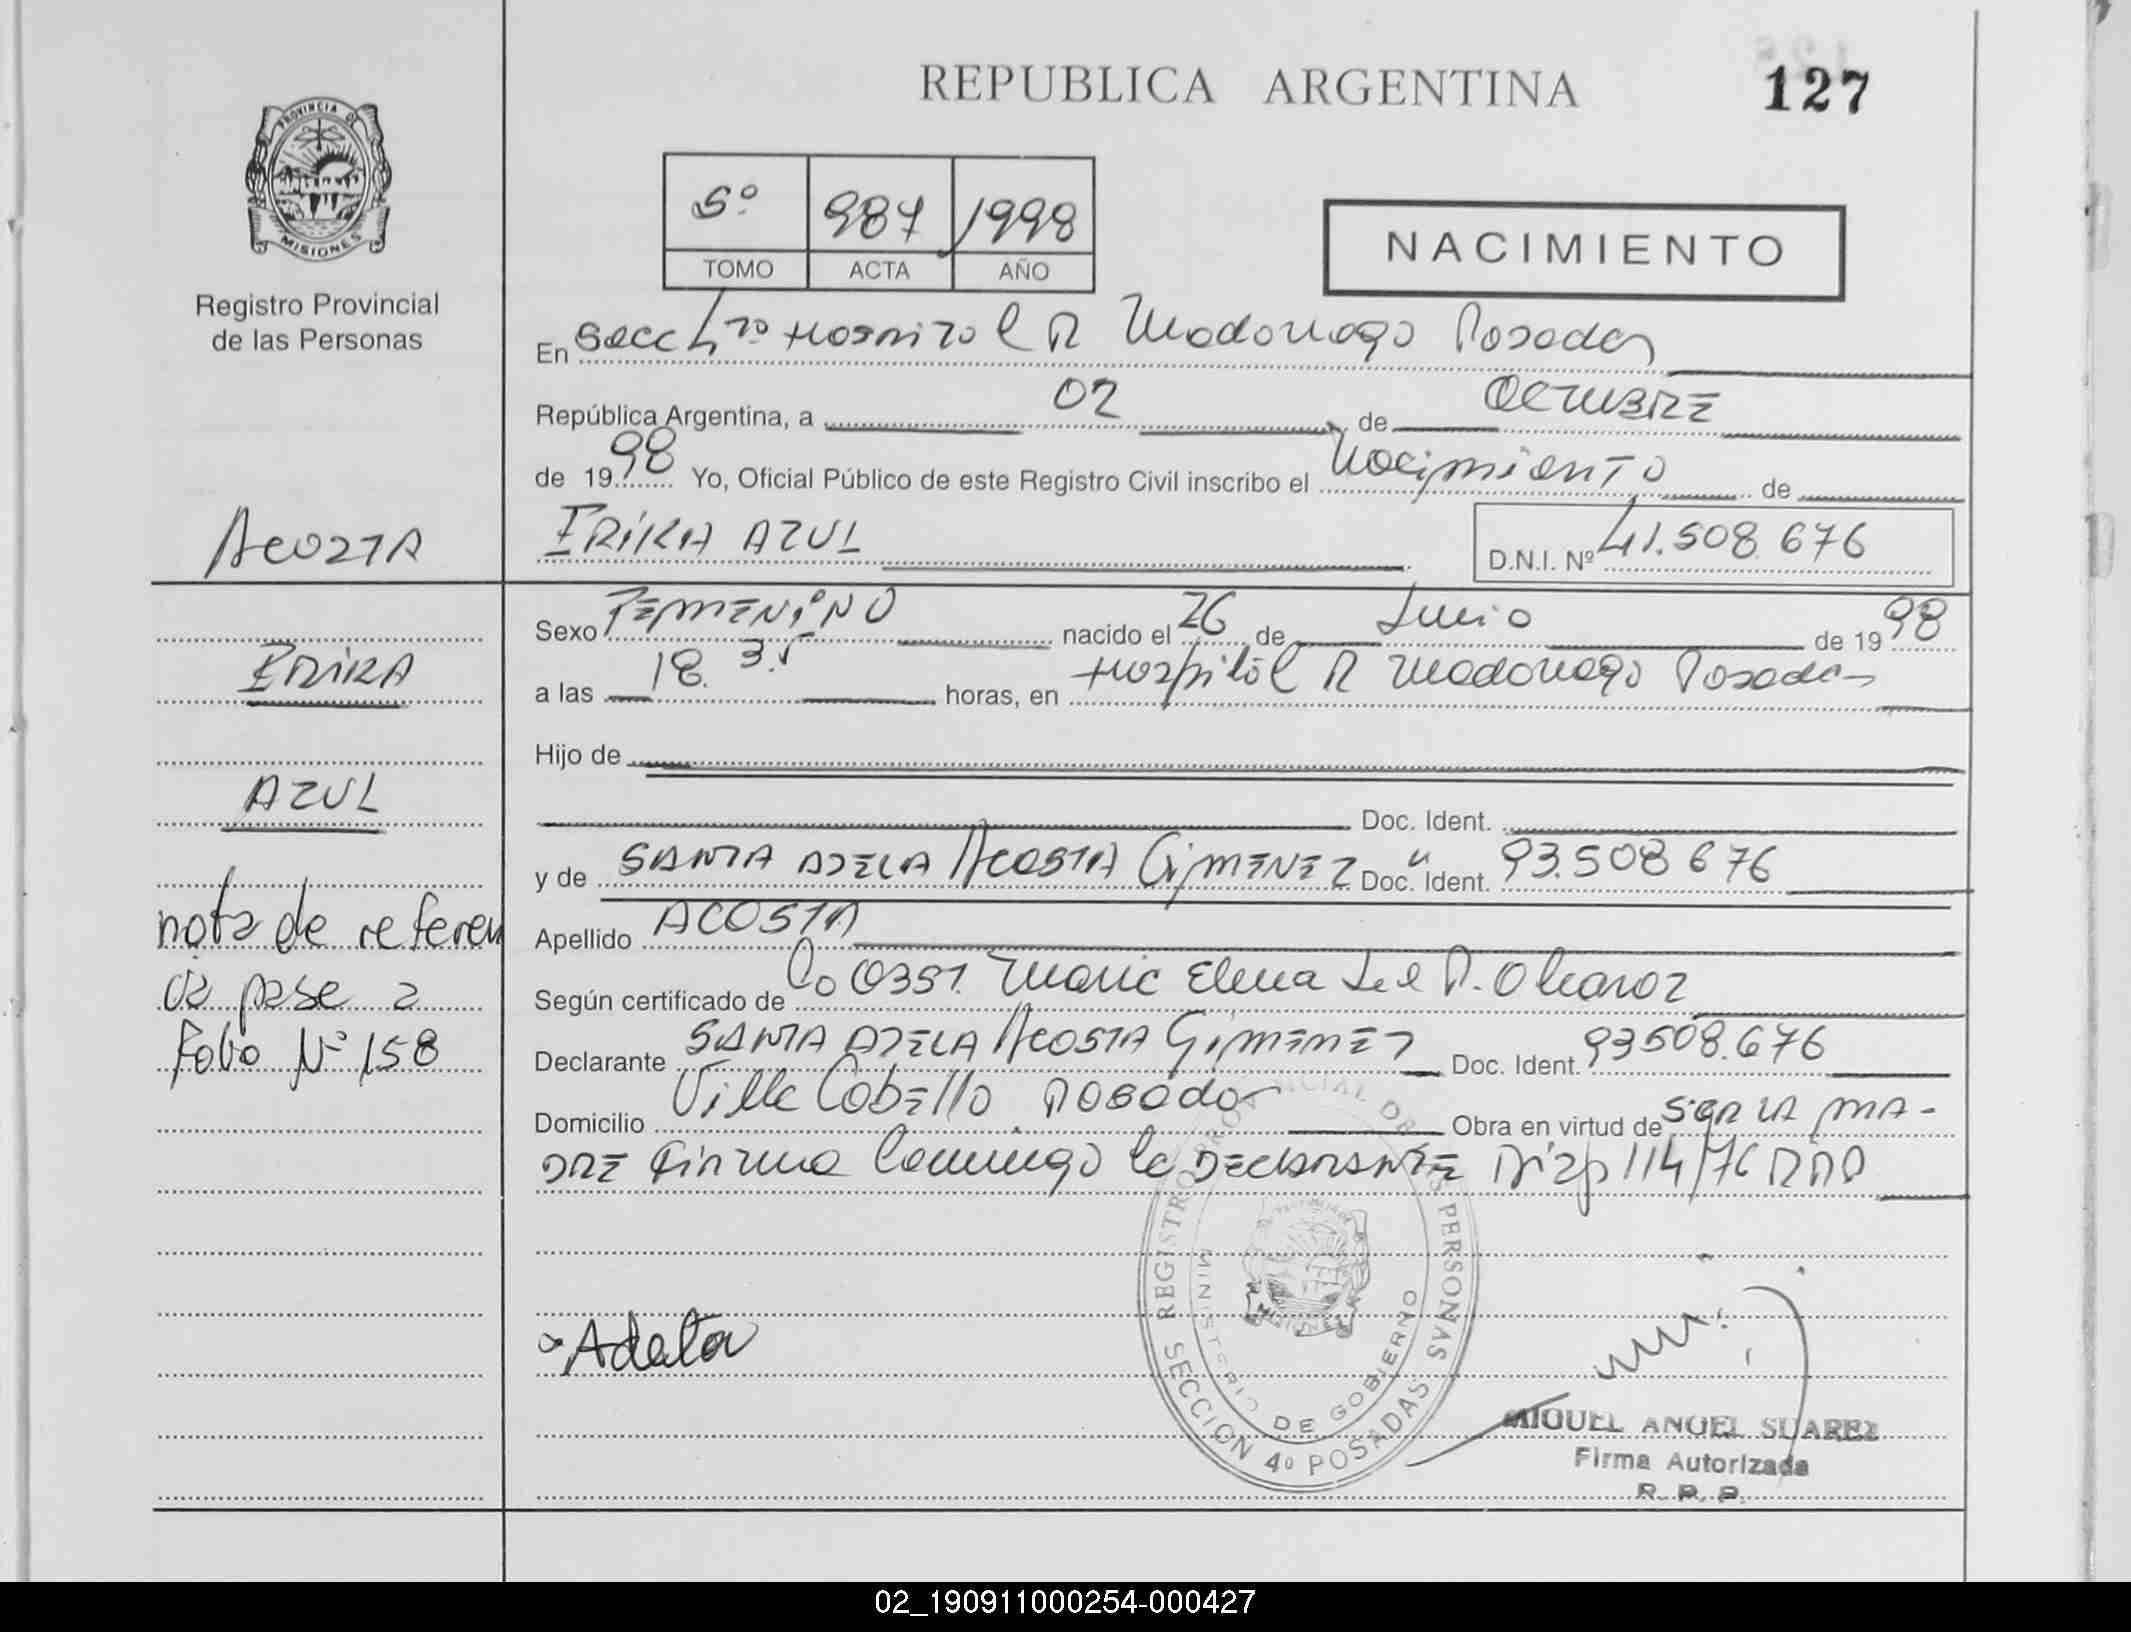 REPUBLICA ARGENTINA
127
PROVINCIA DE
MISIONES
Registro Provincial
de las Personas
5º 987 1998
TOMO ACTA AÑO
NACIMIENTO
En Secc 4ta Hospital R Madariaga Posadas
República Argentina, a 02 de OCTUBRE
de 1998 Yo, Oficial Público de este Registro Civil inscribo el Nacimiento de
ACOSTA
ERIKA AZUL D.N.I. Nº 41.508.676
Sexo FEMENINO nacido el 26 de Junio de 1998
ERIKA
a las 18.35 horas, en Hospital R Madariaga Posadas
Hijo de
AZUL
Doc. Ident.
y de SANTA ADELA ACOSTA GIMENEZ Doc. Ident. 93.508 676
nota de referen
cia pase a
Folio Nº 158
Apellido ACOSTA
Según certificado de Co 0351. Maria Elena del R. Alvarez
Declarante SANTA ADELA ACOSTA GIMENEZ Doc. Ident. 93508.676
Domicilio Villa Cabello Posadas Obra en virtud de SER LA MA-
DRE Firma conmigo la DECLARANTE Disp 114/76
Adela
REGISTRO PROVINCIAL DE LAS PERSONAS
MINISTERIO DE GOBIERNO
SECCION 4º POSADAS
MIGUEL ANGEL SUAREZ
Firma Autorizada
R. P. P.
02_190911000254-000427